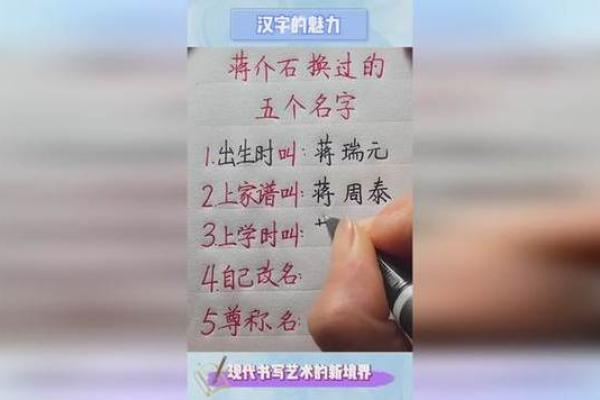 汉字的魅力
蒋介石换过的
五个名字
1.出生时叫:蒋瑞元
2上家谱叫:蒋周泰
3.上学时叫:
4.自己改名:
5尊称名:
现代书写艺术的新境界